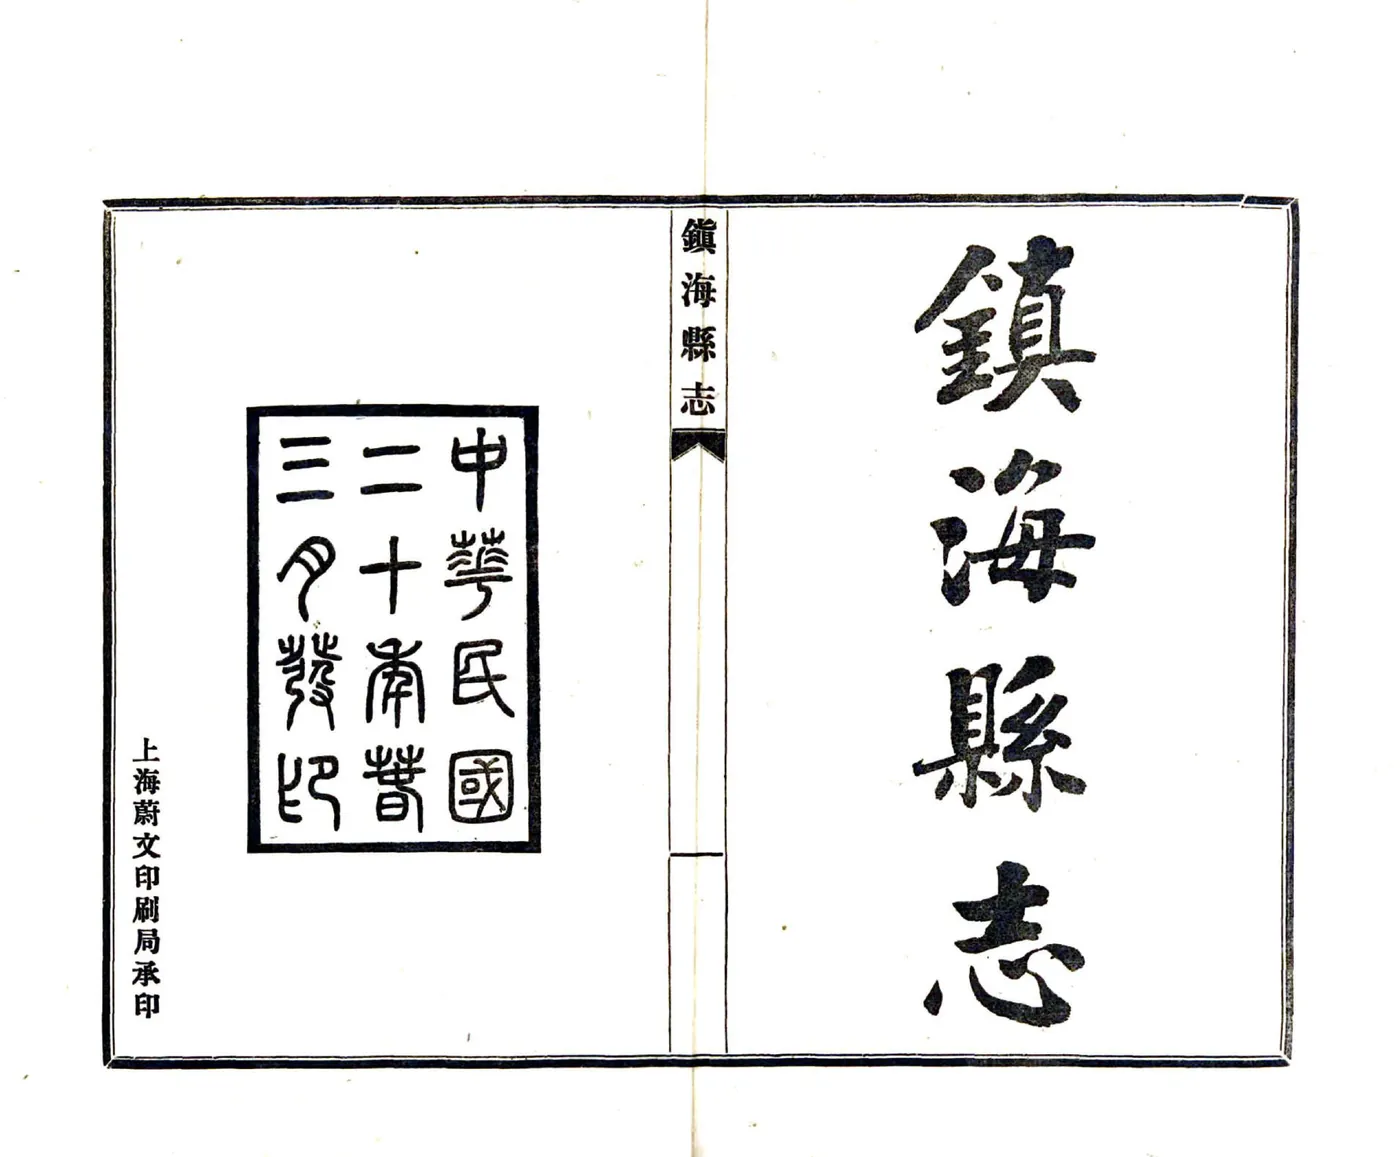 鎭海縣志
鎭海縣志
中華民國
二十年春
三月發印
上海蔚文印刷局承印